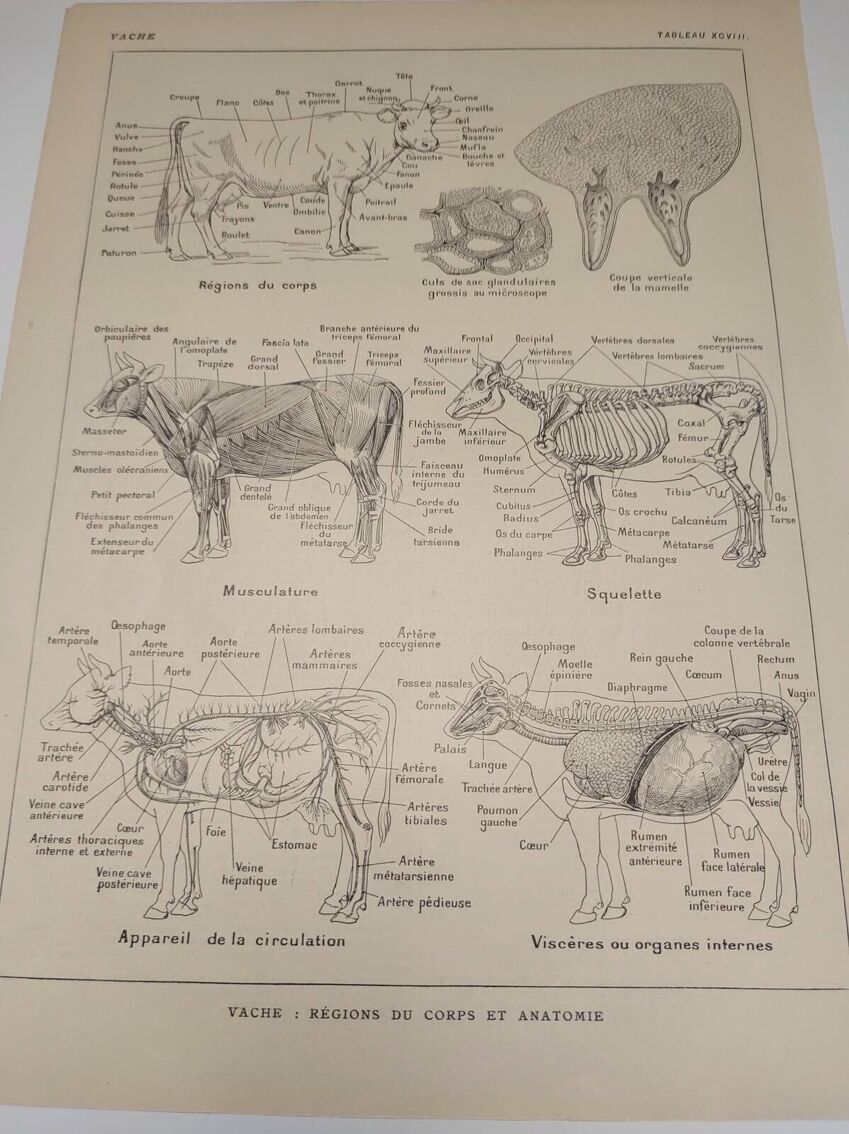 VACHE
TABLEAU XCVIII.
Tête
Garrot
Nuque
et chignon
Front
Dos
Thorax
et poitrine
Croupe
Flanc
Côtes
Corne
Oreille
Œil
Chanfrein
Naseau
Mufle
Bouche et
lèvres
Ganache
Cou
Fanon
Epaule
Anus
Vulve
Hanche
Fesse
Périnée
Rotule
Queue
Cuisse
Jarret
Paturon
Pis
Trayons
Boulet
Ventre
Coude
Ombilic
Canon
Poitrail
Avant-bras
Régions du corps
Culs de sac glandulaires
grossis au microscope
Coupe verticale
de la mamelle
Orbiculaire des
paupières
Angulaire de
l'omoplate
Trapèze
Fascia lata
Grand
dorsal
Branche antérieure du
triceps fémoral
Grand
fessier
Triceps
fémoral
Masseter
Sterno-mastoïdien
Muscles olécraniens
Petit pectoral
Fléchisseur commun
des phalanges
Extenseur du
métacarpe
Grand
dentelé
Grand oblique
de l'abdomen
Fléchisseur
du
métatarse
Fessier
profond
Fléchisseur
de la
jambe
Faisceau
interne du
trijumeau
Corde du
jarret
Bride
tarsienne
Musculature
Frontal
Occipital
Maxillaire
supérieur
Vertèbres
cervicales
Vertèbres dorsales
Vertèbres lombaires
Vertèbres
coccygiennes
Sacrum
Maxillaire
inférieur
Omoplate
Humérus
Sternum
Cubitus
Radius
Os du carpe
Phalanges
Coxal
Fémur
Rotules
Côtes
Tibia
Os crochu
Calcanéum
Métacarpe
Métatarse
Phalanges
Os
du
Tarse
Squelette
Artère
temporale
Œsophage
Aorte
antérieure
Aorte
Aorte
postérieure
Artères lombaires
Artères
mammaires
Artère
coccygienne
Trachée
artère
Artère
carotide
Veine cave
antérieure
Cœur
Artères thoraciques
interne et externe
Veine cave
postérieure
Foie
Veine
hépatique
Estomac
Artère
fémorale
Artères
tibiales
Artère
métatarsienne
Artère pédieuse
Appareil de la circulation
Fosses nasales
et
Cornets
Œsophage
Moelle
épinière
Diaphragme
Rein gauche
Cœcum
Coupe de la
colonne vertébrale
Rectum
Anus
Vagin
Palais
Langue
Trachée artère
Poumon
gauche
Cœur
Rumen
extrémité
antérieure
Rumen
face latérale
Rumen face
inférieure
Urètre
Col de
la vessie
Vessie
Viscères ou organes internes
VACHE : RÉGIONS DU CORPS ET ANATOMIE